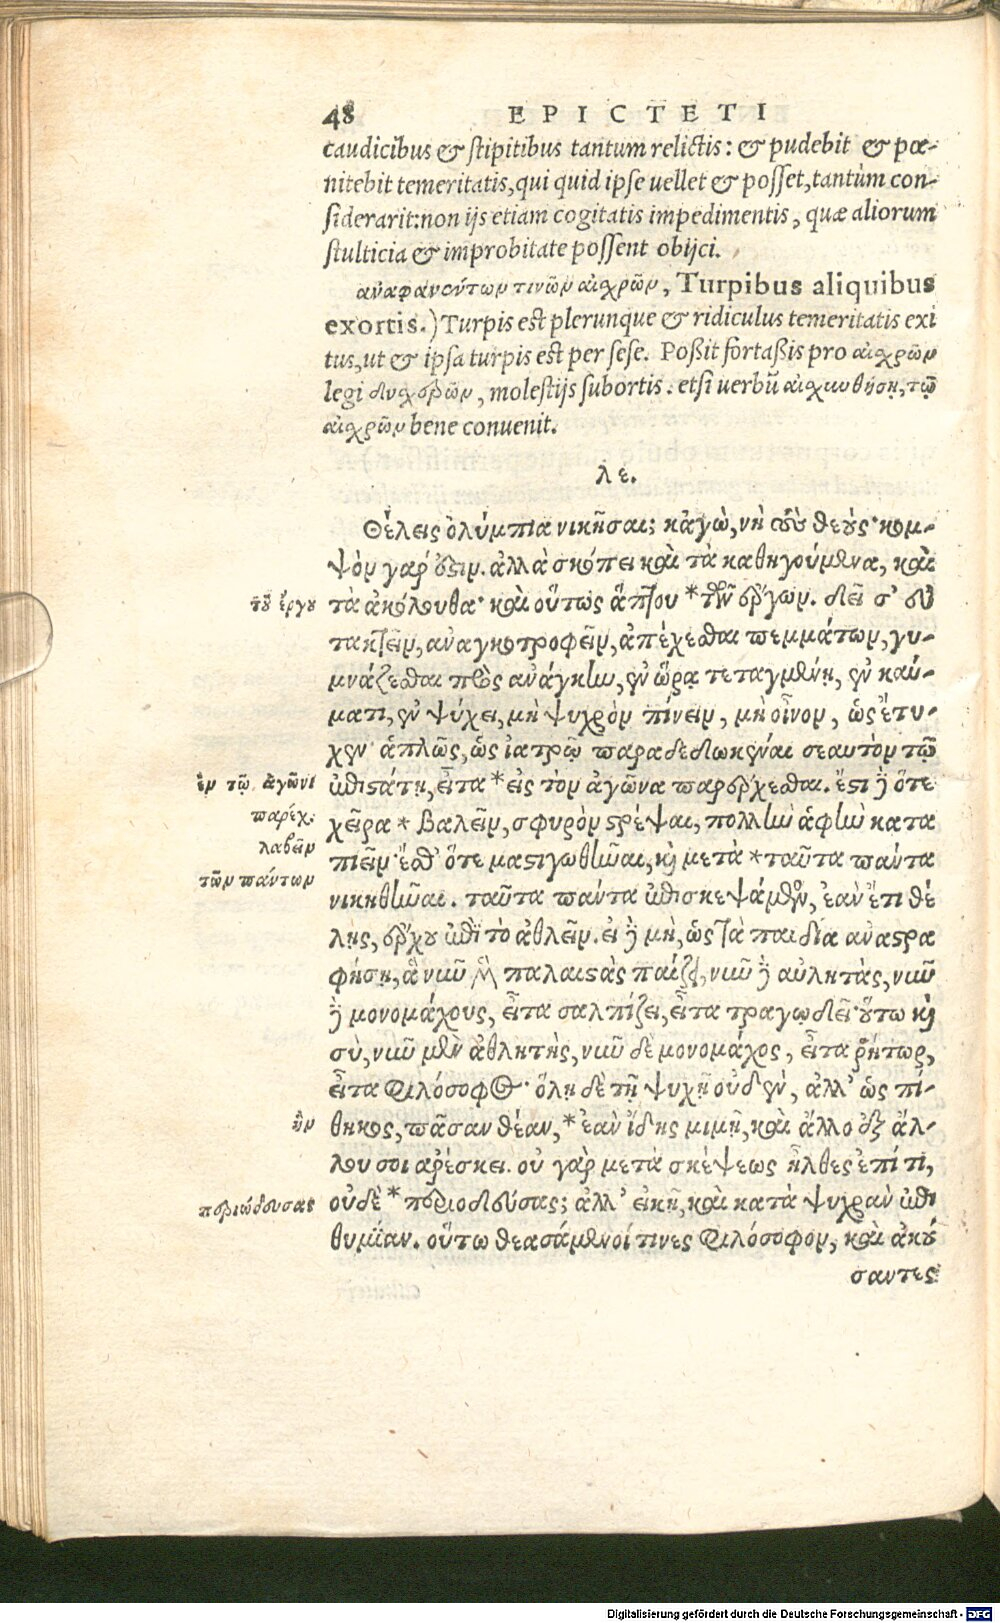 48 EPICTETI
caudicibus & stipitibus tantum relictis: & pudebit & pœ-
nitebit temeritatis, qui quid ipse uellet & posset, tantùm con-
siderarit: non ijs etiam cogitatis impedimentis, quæ aliorum
stulticia & improbitate possent obijci.
ἀναφανέντων τινῶν αἰσχρῶν, Turpibus aliquibus
exortis.) Turpis est plerunque & ridiculus temeritatis exi
tus, ut & ipsa turpis est per sese. Poßit fortaßis pro αἰσχρῶν
legi δυσχερῶν, molestijs subortis. etsi uerbũ αἰσχυνθήσῃ, τῷ
αἰσχρῶν bene conuenit.
λε.
Θέλεις ὀλύμπια νικῆσαι; κᾀγὼ, νὴ τοὺς θεούς· κομ-
ψὸν γάρ ἐστιν. ἀλλὰ σκόπει καὶ τὰ καθηγούμενα, καὶ
τοῦ ἔργου
τὰ ἀκόλουθα· καὶ οὕτως ἅπτου *τῶν ἔργων. δεῖ σ' εὐ
τακτεῖν, ἀναγκοτροφεῖν, ἀπέχεσθαι πεμμάτων, γυ-
μνάζεσθαι πρὸς ἀνάγκην, ἐν ὥρᾳ τεταγμένῃ, ἐν καύ-
ματι, ἐν ψύχει, μὴ ψυχρὸν πίνειν, μὴ οἶνον, ὡς ἔτυ-
χεν· ἁπλῶς, ὡς ἰατρῷ παραδεδωκέναι σεαυτὸν τῷ
ἐν τῷ ἀγῶνι
παρέχ.
ἐπιστάτῃ, εἶτα *εἰς τὸν ἀγῶνα παρέρχεσθαι. ἔστι δὲ ὅτε
λαβεῖν
χεῖρα *βαλεῖν, σφυρὸν στρέψαι, πολλὴν ἁφὴν κατα
τῶν πάντων
πιεῖν· ἔσθ' ὅτε μαστιγωθῆναι, καὶ μετὰ *ταῦτα πάντα
νικηθῆναι. ταῦτα πάντα ἐπισκεψάμενος, ἐὰν ἔτι θέ
λῃς, ἔρχου ἐπὶ τὸ ἀθλεῖν. εἰ δὲ μὴ, ὡς τὰ παιδία ἀναστρα
φήσῃ, ἃ νῦν μὲν παλαιστὰς παίζει, νῦν δὲ αὐλητὰς, νῦν
δὲ μονομάχους, εἶτα σαλπίζει, εἶτα τραγῳδεῖ· οὕτω καὶ
σὺ, νῦν μὲν ἀθλητὴς, νῦν δὲ μονομάχος, εἶτα ῥήτωρ,
εἶτα φιλόσοφος· ὅλῃ δὲ τῇ ψυχῇ οὐδὲν, ἀλλ' ὡς πί-
ἣν
θηκος, πᾶσαν θέαν, *ἐὰν ἴδῃς μιμῇ, καὶ ἄλλο ἐξ ἄλ-
λου σοι ἀρέσκει. οὐ γὰρ μετὰ σκέψεως ἦλθες ἐπί τι,
περιώδευσας
οὐδὲ *περιοδεύσας; ἀλλ' εἰκῆ, καὶ κατὰ ψυχρὰν ἐπι
θυμίαν. οὕτω θεασάμενοί τινες φιλόσοφον, καὶ ἀκού
σαντες
Digitalisierung gefördert durch die Deutsche Forschungsgemeinschaft - DFG